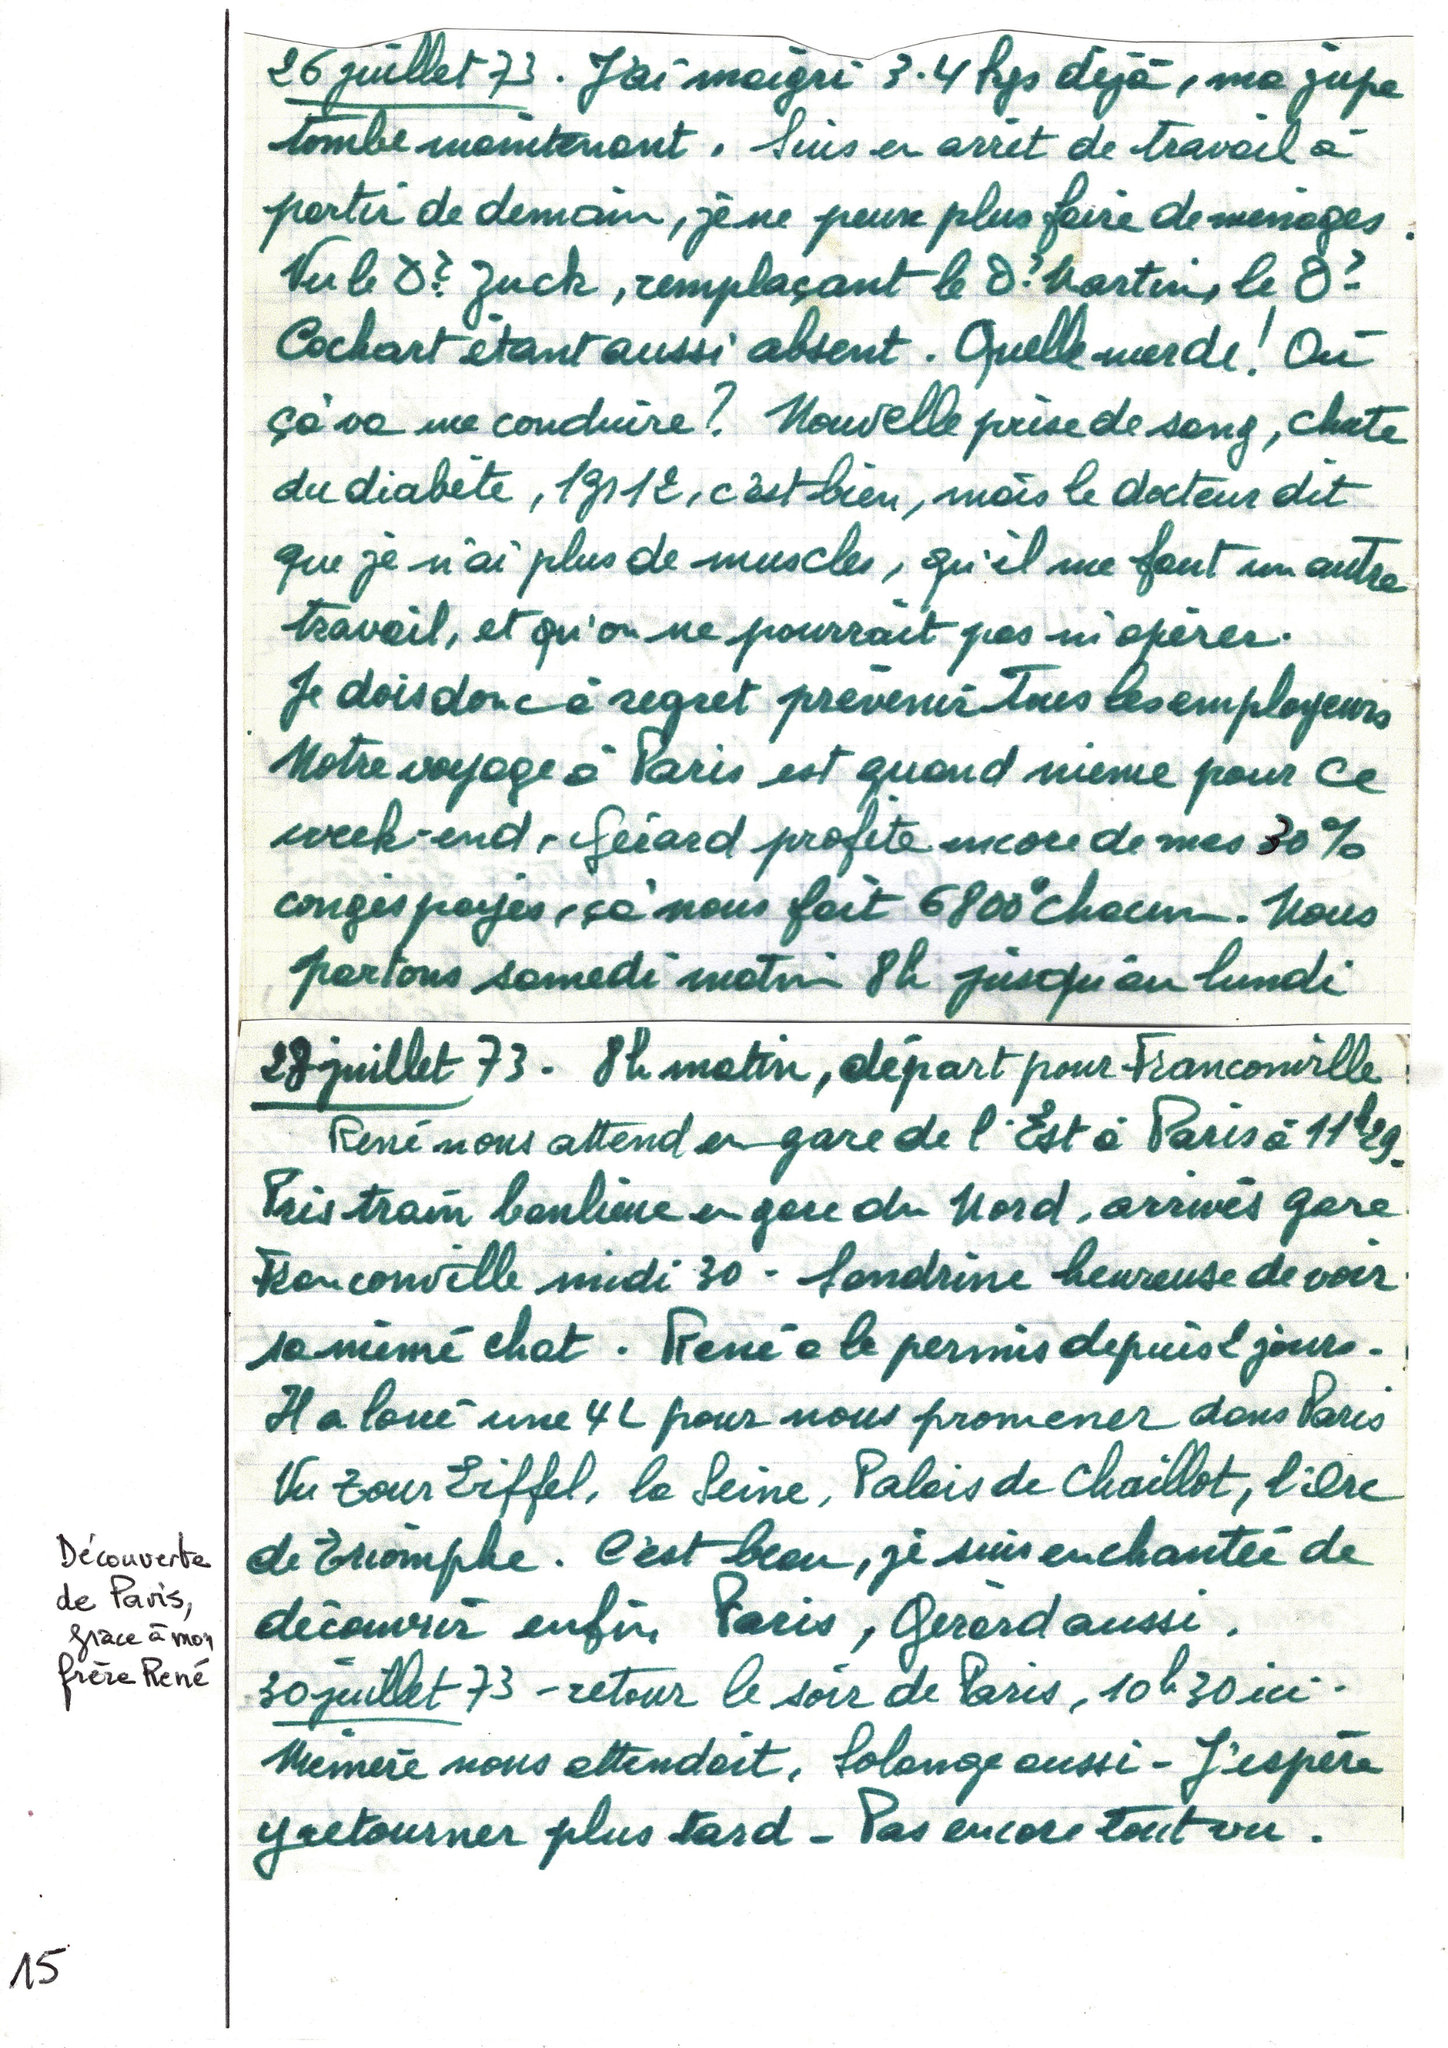 26 juillet 73. J'ai maigri 3.4 kgs déjà, ma jupe
tombe maintenant. Suis en arrêt de travail à
partir de demain, je ne peux plus faire de ménages.
Vu le Dr Juck, remplaçant le Dr Martin, le Dr
Cochart étant aussi absent. Quelle merde! Où
çà va me conduire? Nouvelle prise de sang, chute
du diabète, 1gr12, c'est bien, mais le docteur dit
que je n'ai plus de muscles, qu'il me faut un autre
travail, et qu'on ne pourrait pas m'opérer.
Je dois donc à regret prévenir tous les employeurs
Notre voyage à Paris est quand même pour ce
week-end, Gérard profite encore de mes 30%
congés payés, çà nous fait 6800° chacun. Nous
partons samedi matin 8h jusqu'au lundi
28 juillet 73. 8h matin, départ pour Franconville
René nous attend en gare de l'Est à Paris à 11h29.
Pris train banlieue en gare du Nord, arrivés gare
Franconville midi 30 - Sandrine heureuse de voir
sa mémé chat. René a le permis depuis 2 jours.
Il a loué une 4L pour nous promener dans Paris
Vu Tour Eiffel, la Seine, Palais de Chaillot, l'Arc
de Triomphe. C'est beau, je suis enchantée de
découvrir enfin Paris, Gérard aussi.
30 juillet 73 - retour le soir de Paris, 10h30 ici.
Mémère nous attendait, Solange aussi - J'espère
y retourner plus tard - Pas encore tout vu.
Découverte
de Paris,
grâce à mon
frère René
15